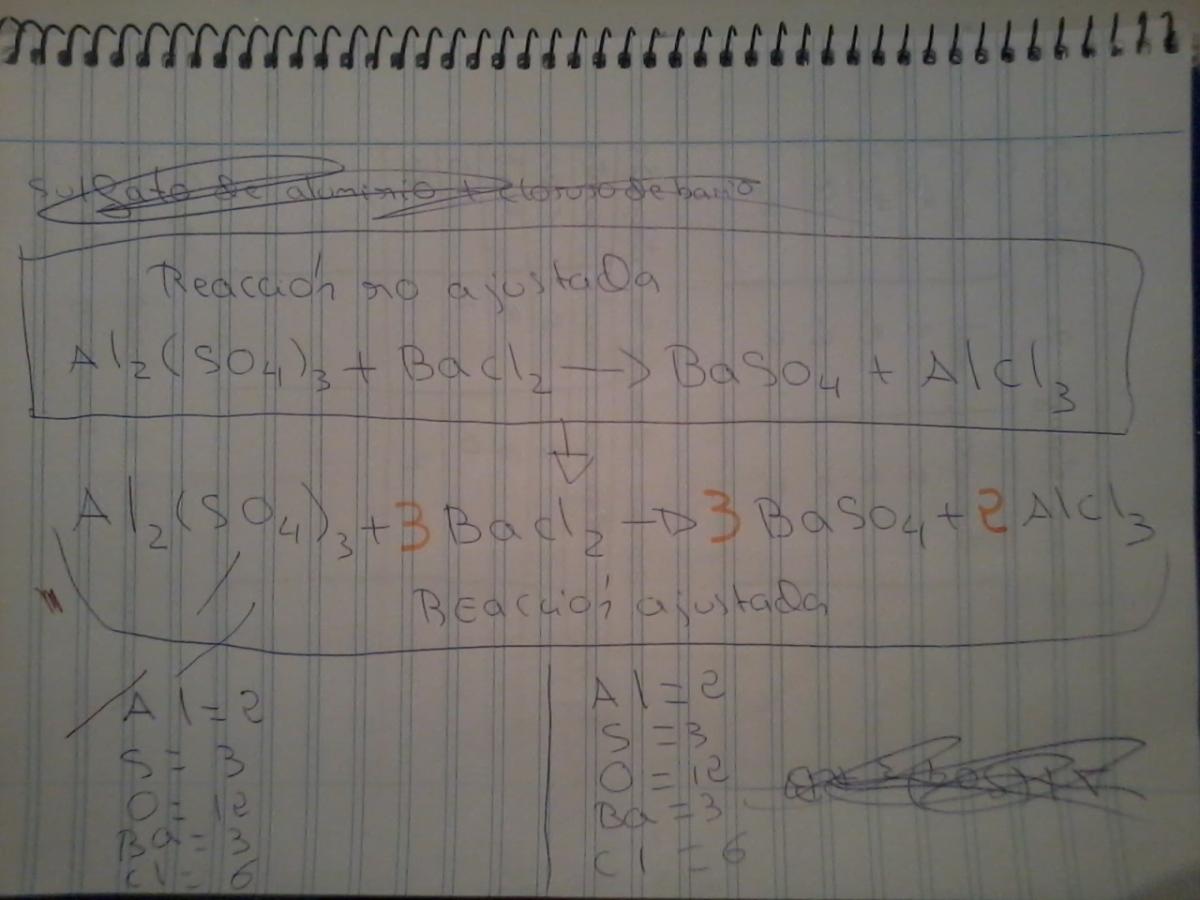 Sulfato de aluminio + cloruro de bario
Reacción no ajustada
Al₂(SO₄)₃ + BaCl₂ → BaSO₄ + AlCl₃
Al₂(SO₄)₃ + 3 BaCl₂ → 3 BaSO₄ + 2 AlCl₃
Reacción ajustada
Al = 2
S = 3
O = 12
Ba = 3
Cl = 6
Al = 2
S = 3
O = 12
Ba = 3
Cl = 6